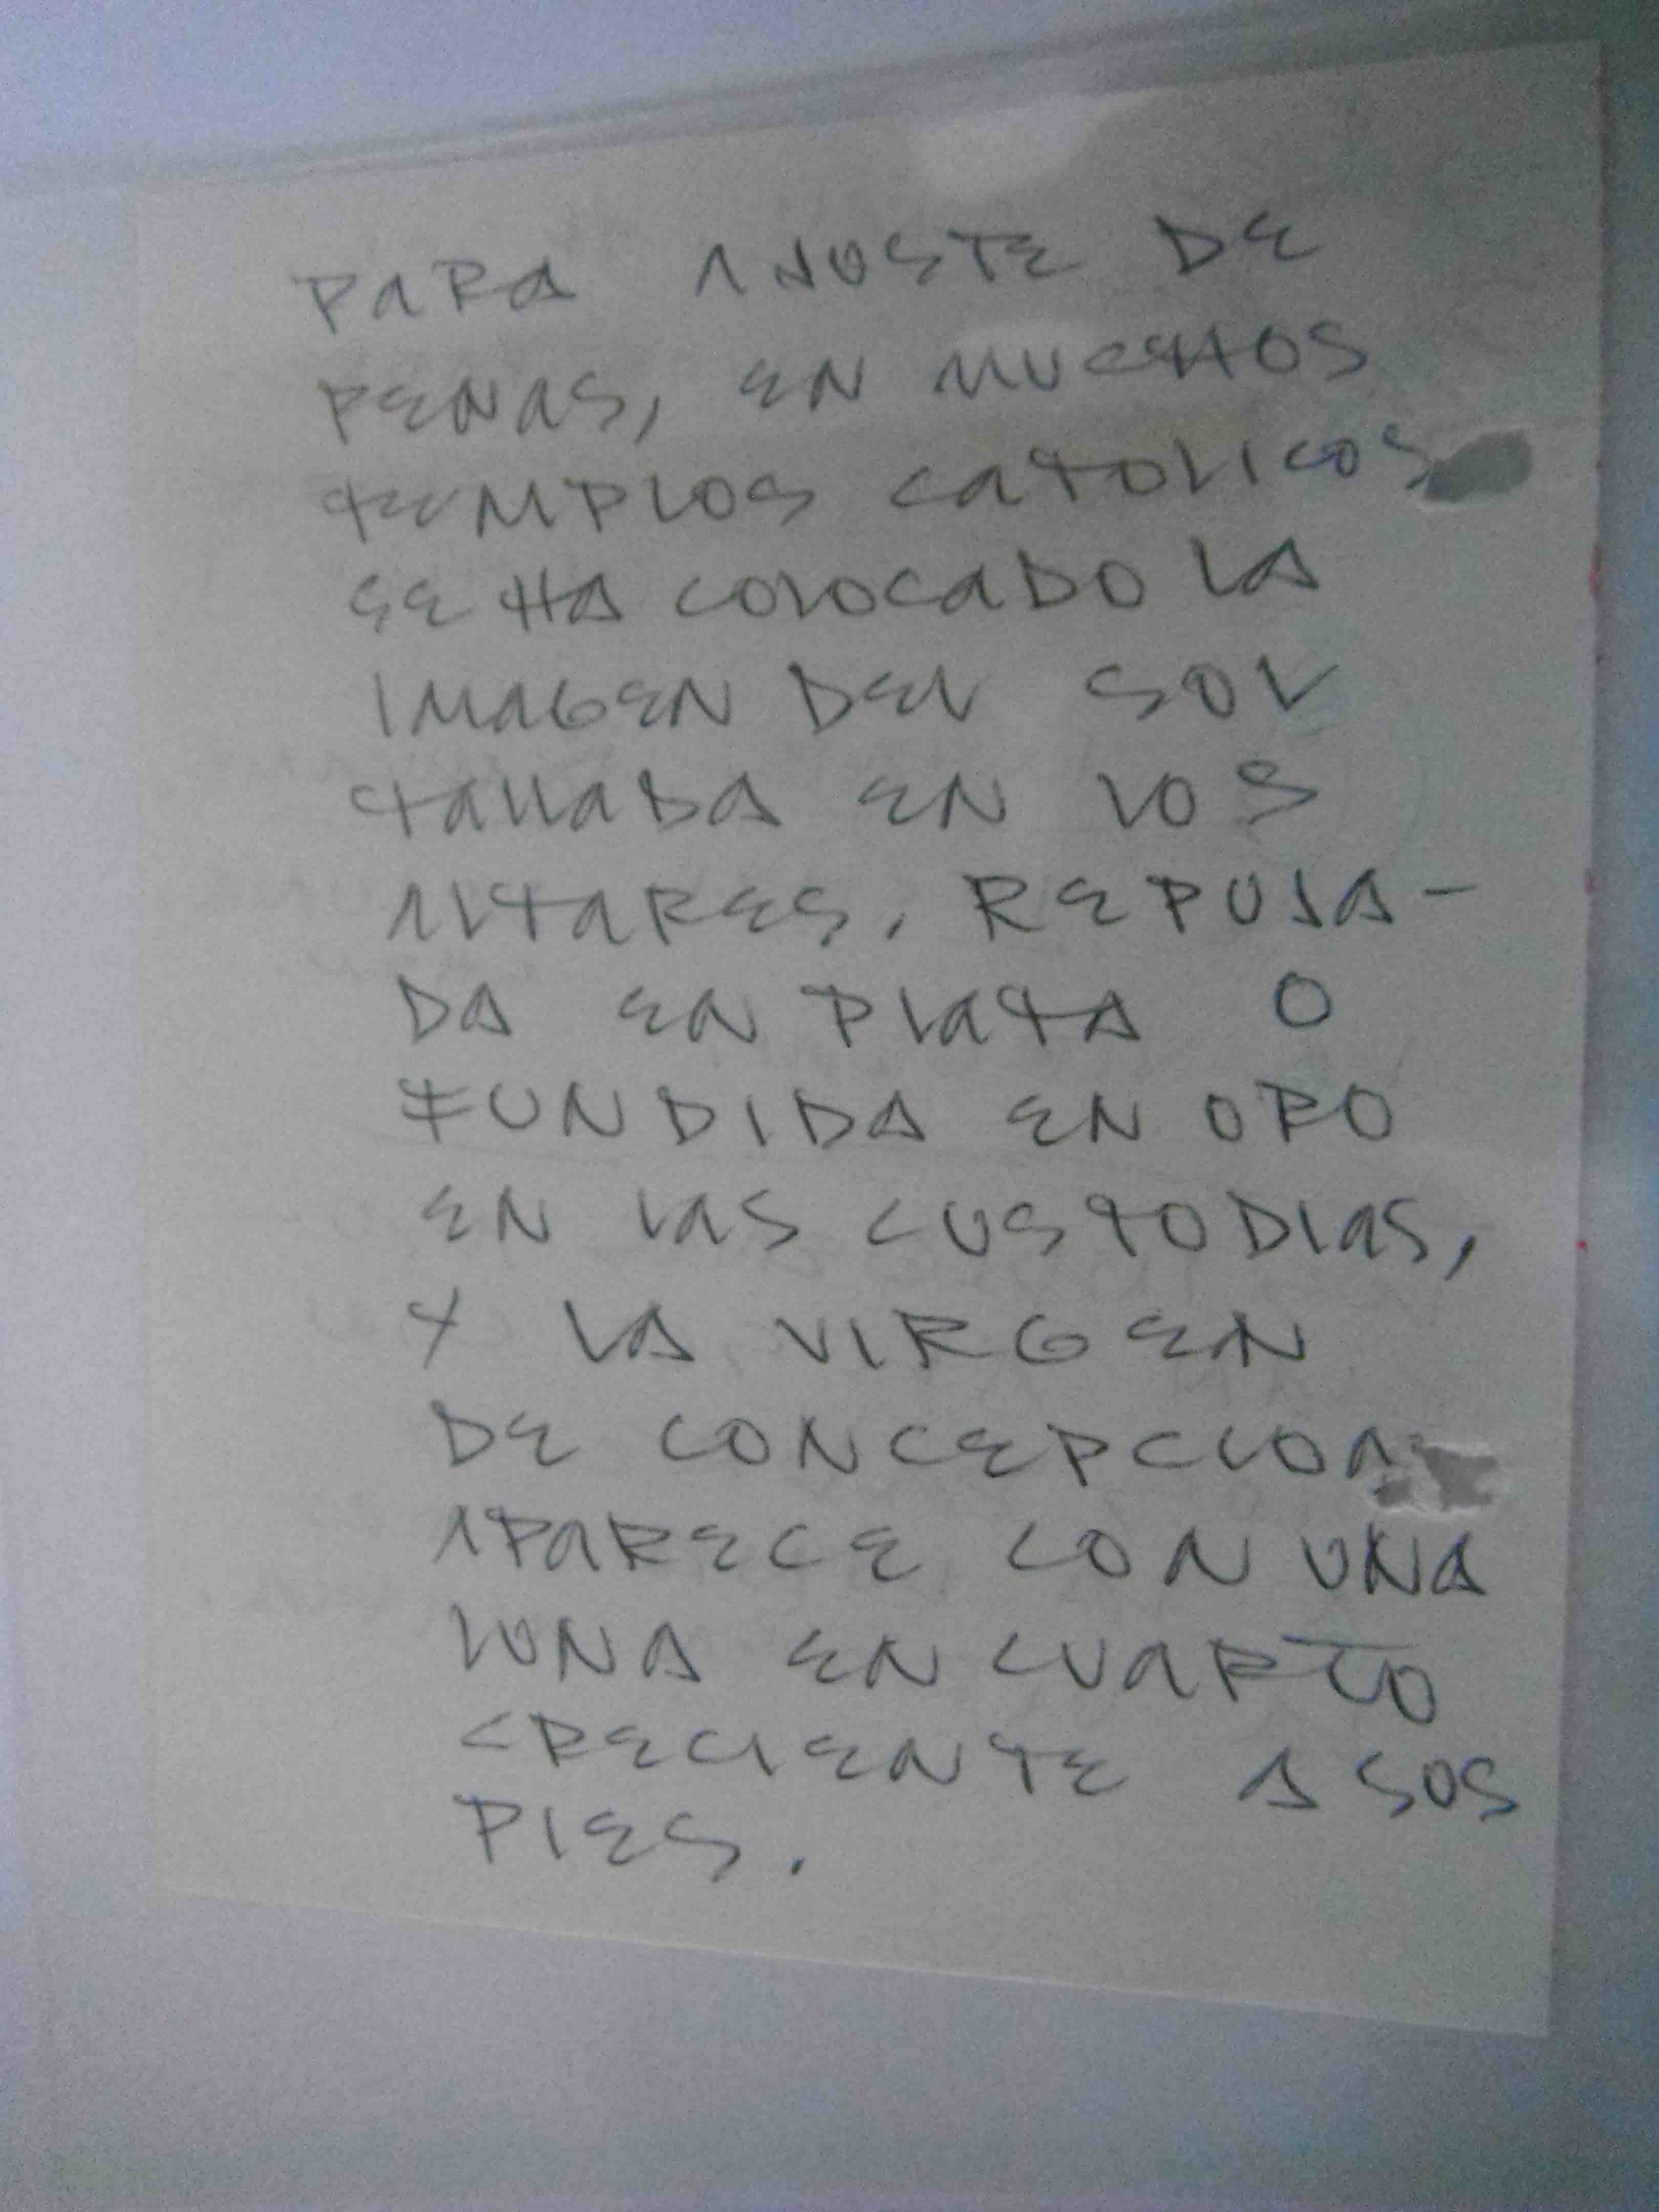 PARA AJUSTE DE
PENAS, EN MUCHOS
TEMPLOS CATOLICOS
SE HA COLOCADO LA
IMAGEN DEL SOL
TALLADA EN LOS
ALTARES, REPUJA-
DA EN PLATA O
FUNDIDA EN ORO
EN LAS CUSTODIAS,
Y LA VIRGEN
DE CONCEPCION
APARECE CON UNA
LUNA EN CUARTO
CRECIENTE A SUS
PIES.